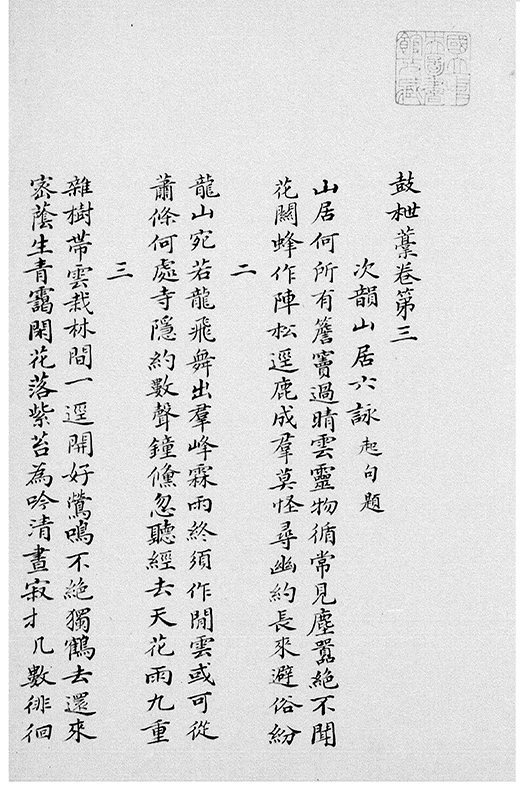 鼓枻藁卷第三
次韻山居六詠起句題
山居何所有簷竇過晴雲靈物循常見塵囂絕不聞
花闗蜂作陣松逕鹿成羣莫怪尋幽約長來避俗紛
二
龍山宛若龍飛舞出羣峰霖雨終須作閒雲或可從
蕭條何處寺隱約數聲鐘儵忽聽經去天花雨九重
三
雜樹帶雲栽林間一逕開好鶯鳴不絕獨鶴去還來
密蔭生青靄閑花落紫苔為吟清晝寂才几數徘徊